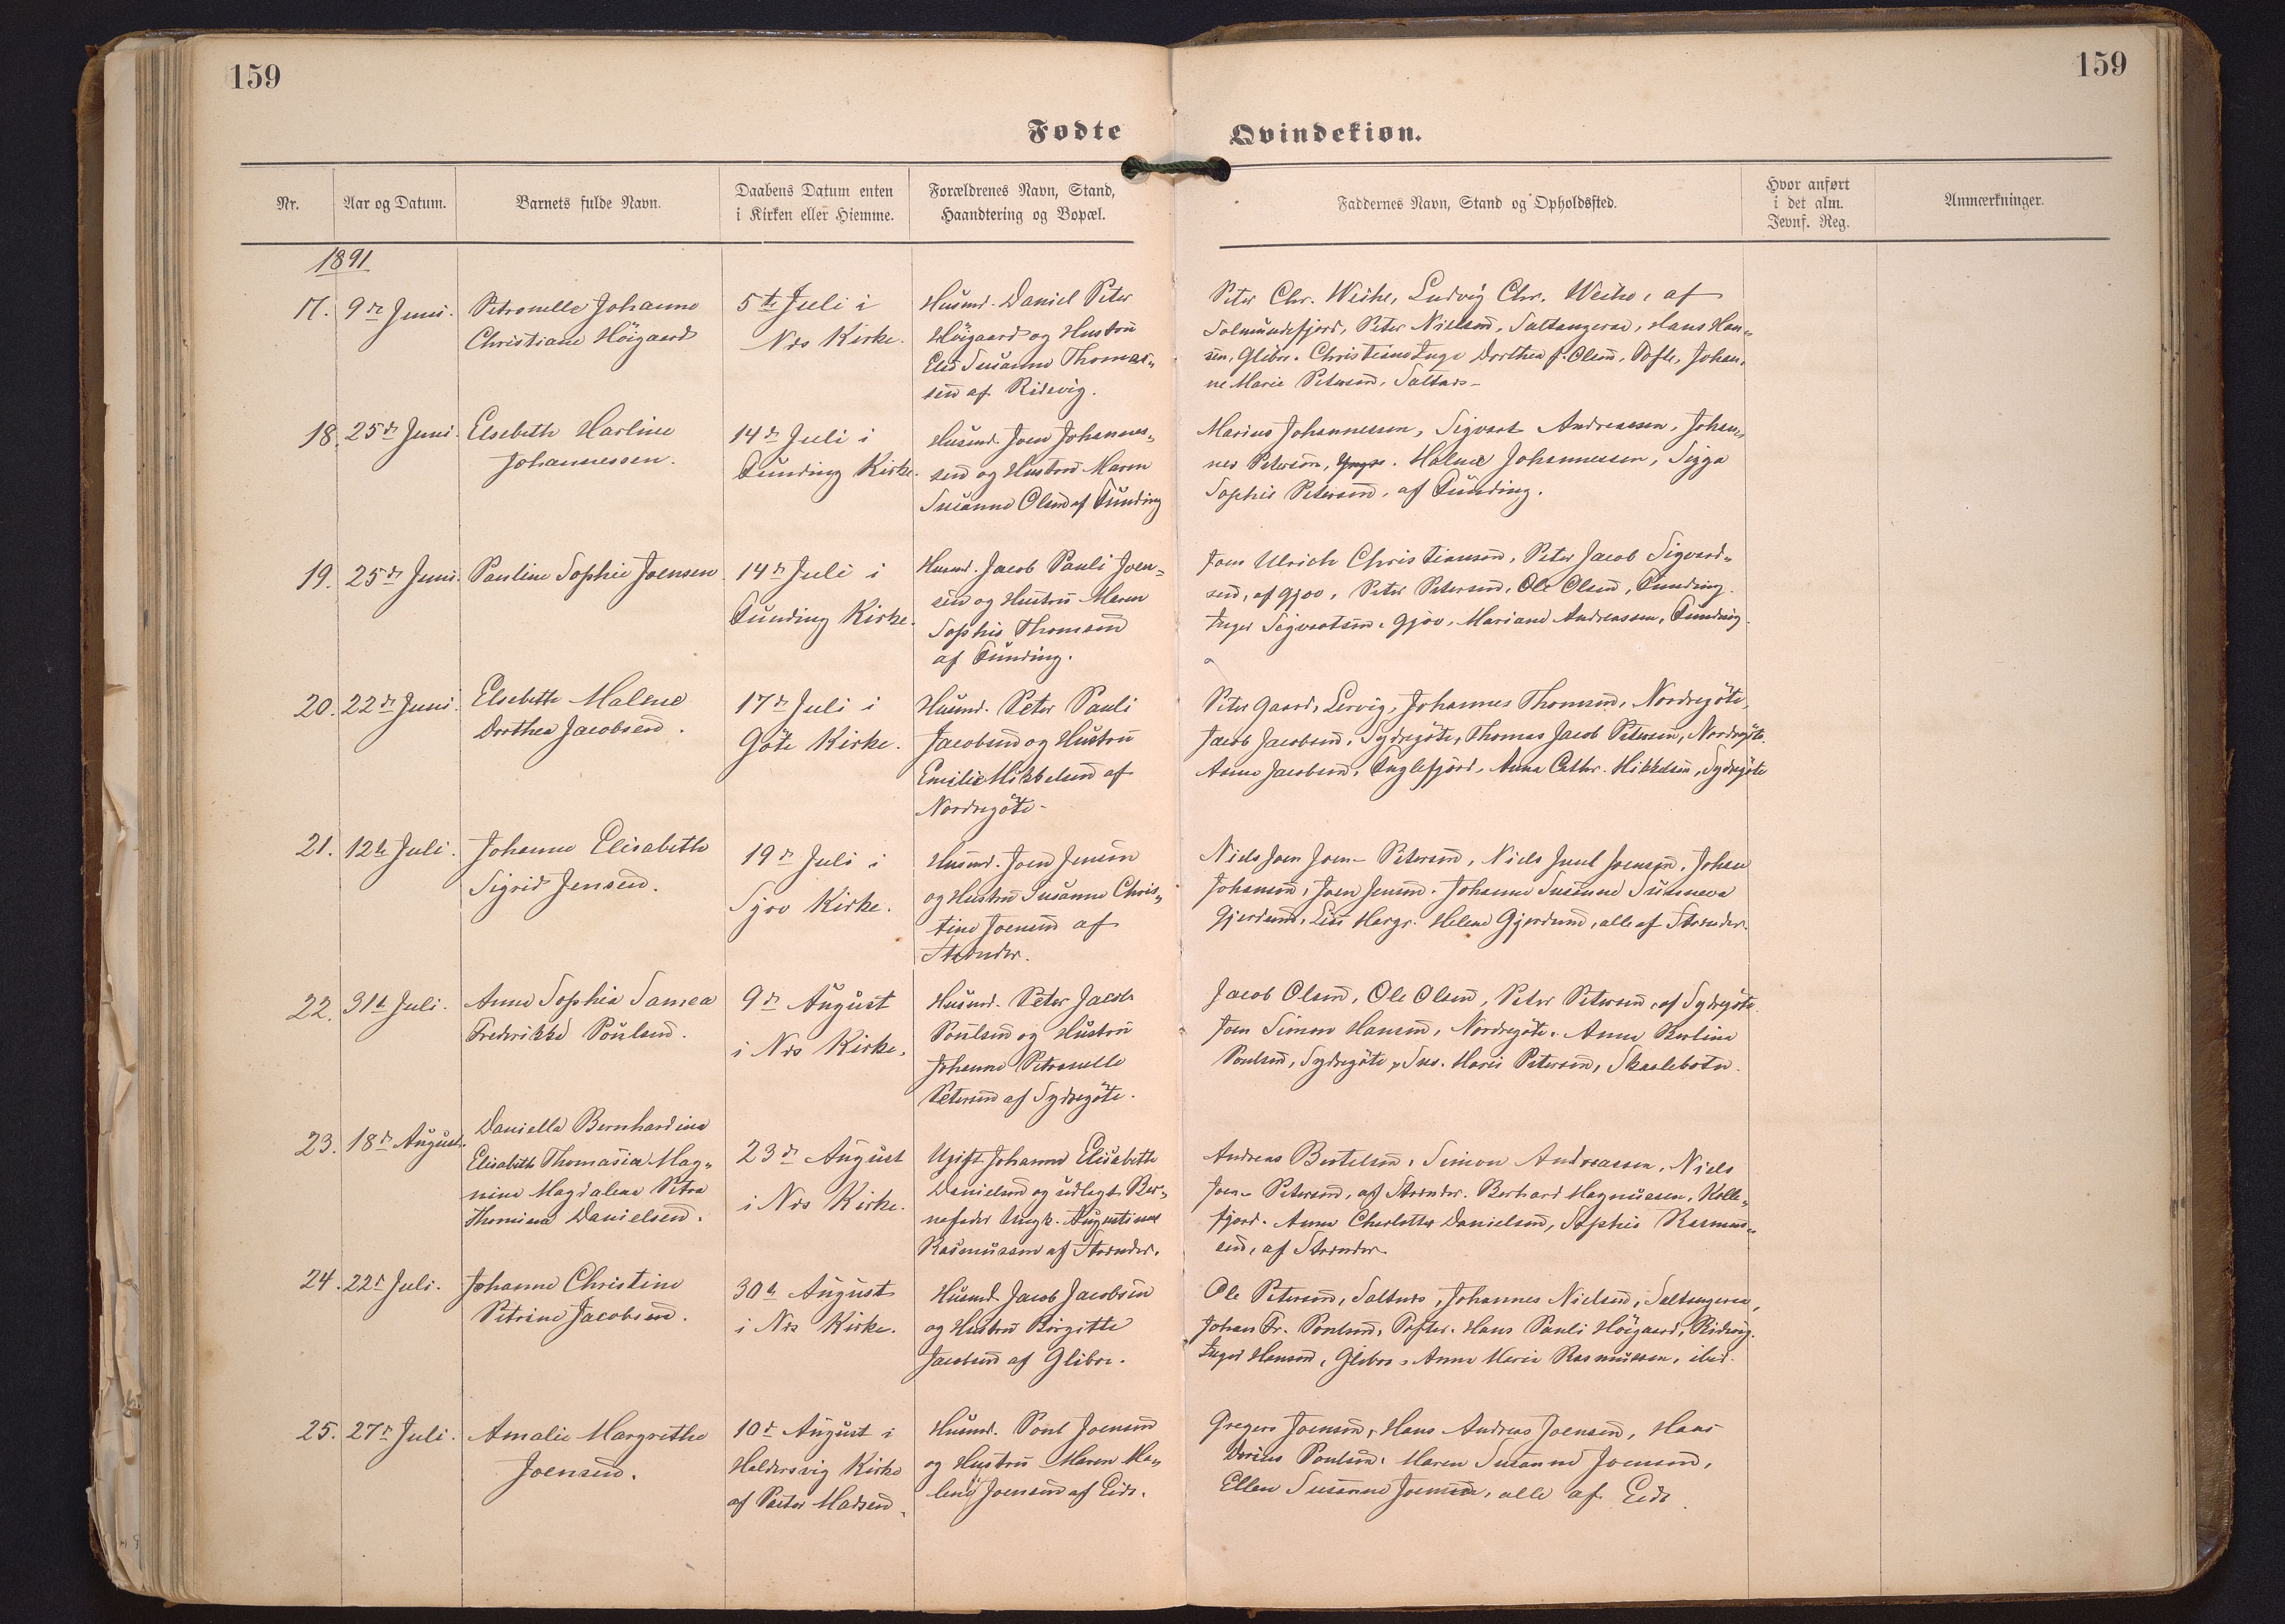 159
159
Fødte
Qvindekiøn.
Nr.
Aar og Datum.
Barnets fulde Navn.
Daabens Datum enten
i Kirken eller Hiemme.
Forældrenes Navn, Stand,
Haandtering og Bopæl.
Faddernes Navn, Stand og Opholdssted.
Hvor anført
i det alm.
Jevnf. Reg.
Anmærkninger.
1891
17. 9de Juni.
Petronelle Johanne
Christiane Höigaard
5te Juli i
Næs Kirke.
Husmd. Daniel Peter
Höigaard og Hustru
Susanne Thomas-
sen af Ridevig.
Peter Chr. Weihe, Ludvig Chr. Weihe, af
Solmundefjord, Peter Nielsen, Saltangeraa, Hans Han-
sen, Glibre. Dorthea J. Olsen, Tofte, Johan-
ne Marie Petersen, Saltnæs
18. 25de Juni.
Elsebeth Harline
Johannessen.
14de Juli i
Funding Kirke.
Husmd. Joen Johannes-
sen og Hustru Maren
Susanne Olsen af Funding
Marius Johannessen, Sigvart Andreassen, Johan-
nes Petersen, Malene Johannessen, Sigga
Sophie Petersen, af Funding.
19. 25de Juni.
Pauline Sophie Joensen
14de Juli i
Funding Kirke.
Husmd. Jacob Pauli Joen-
sen og Hustru Maren
Sophie Thomsen
af Funding.
Joen Ulrich Christiansen, Peter Jacob Sigvard-
sen, af Gjov, Peter Petersen, Ole Olsen, Funding.
Inger Sigvartsen, Gjov, Mariane Andreassen, Funding.
20. 22de Juni.
Elsebeth Malene
Dorthea Jacobsen.
17de Juli i
Göte Kirke.
Husmd. Peter Pauli
Jacobsen og Hustru
Emilie Mikkelsen af
Nordregöte.
Peter Gaard, Lervig, Johannes Thomsen, Nordregöte,
Jacob Jacobsen, Sydregöte, Thomas Jacob Petersen, Nordregöte.
Anna Jacobsen, Fuglefjord, Anna Cathr. Mikkelsen, Sydregöte
21. 12te Juli.
Johanne Elisabeth
Sigrid Jensen.
19de Juli i
Sjov Kirke.
Husmd. Joen Jensen
og Hustru Susanne Chris-
tine Joensen af
Strænder.
Niels Joen Joen- Petersen, Niels Juul Joensen, Johan
Johansen, Joen Jensen. Johanne Susanne Sunneva
Gjerdum, Helene Gjerdum, alle af Strænder.
22. 31te Juli.
Anne Sophia Samea
Frederikke Poulsen.
9de August
i Næs Kirke.
Husmd. Peter Jacob
Poulsen og Hustru
Johanne Petronelle
Petersen af Sydregöte.
Jacob Olsen, Ole Olsen, Peter Petersen, af Sydregöte.
Joen Simon Hansen, Nordregöte. Anna Berlina
Poulsen, Sydregöte, Sus. Marie Petersen, Skaalebotn.
23. 18de August.
Daniella Bernhardine
Elisabeth Thomasia Mag-
nine Magdalena Petra
Thomine Danielsen.
23de August
i Næs Kirke.
Ugift Johanne Elisabeth
Danielsen og udlagt Bar-
nefader Ungk. Augustinus
Rasmussen af Strænder.
Andreas Bertelsen, Simon Andreassen, Niels
Joen- Petersen, af Strænder. Berhard Magnussen, Kolle-
fjord. Anne Charlotte Danielsen, Sophie Rasmus-
sen, af Strænder.
24. 22de Juli.
Johanne Christine
Petrine Jacobsen.
30te August
i Næs Kirke.
Husmd. Jacob Jacobsen
og Hustru Birgitte
Jacobsen af Glibre.
Ole Petersen, Saltnæs, Johannes Nielsen, Saltangeraa,
Johan Fr. Poulsen, Tofter. Hans Pauli Höigaard, Ridevig.
Inger Hansen, Glibre, Anna Maria Rasmussen, ibid.
25. 27de Juli.
Amalie Margrethe
Joensen.
10de August i
Haldersvig Kirke
af Pastor Madsen.
Husmd. Poul Joensen
og Hustru Maren Ma-
lene Joensen af Eide.
Gregers Joensen, Hans Andreas Joensen, Hans
Dorius Poulsen. Maren Susanne Joensen,
Ellen Susanne Joensen, alle af Eide.